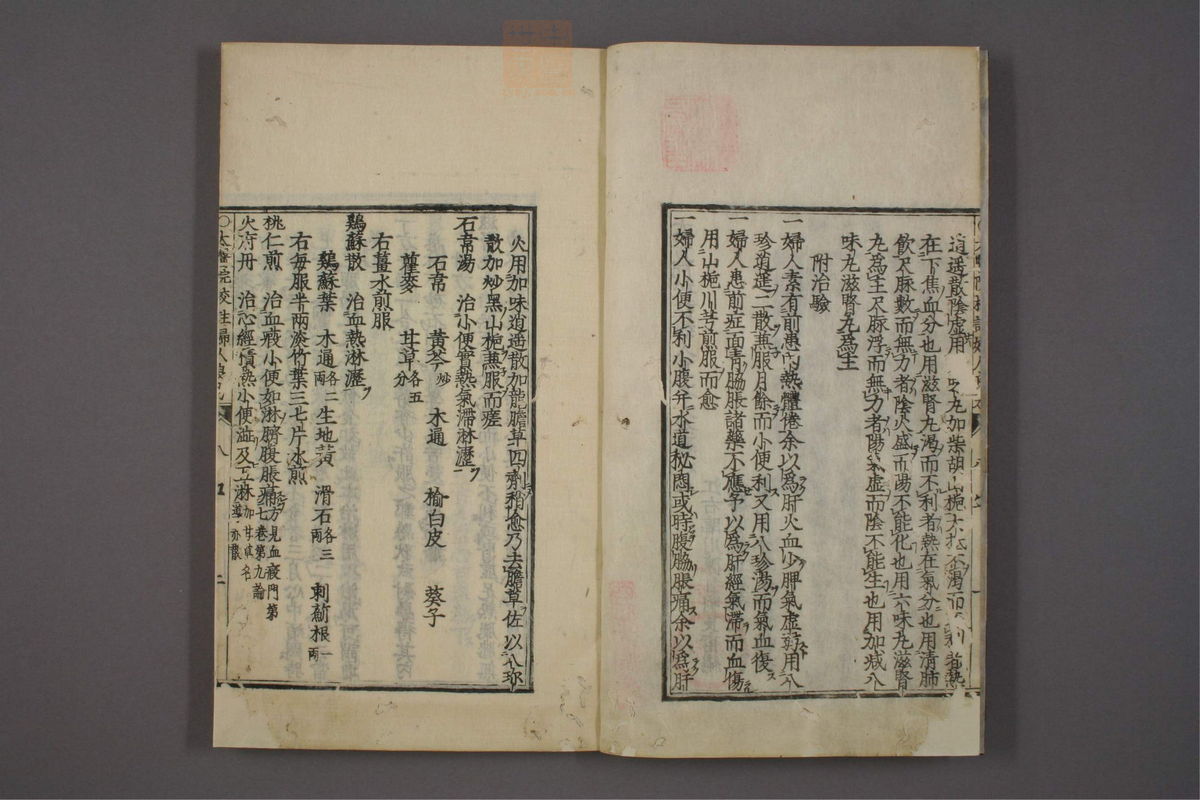 逍遥散陰虚用 味丸加柴胡山梔大抵不渇而 利者熱
在下焦血分也用滋腎丸渇而不利者熱在氣分也用清肺
飲尺脉數而無力者陰火盛而陽不能化也用六味丸滋腎
丸爲主尺脉浮而無力者陽氣虚而陰不能生也用加减八
味丸滋腎丸爲主
附治驗
一婦人素有前患內熱體倦余以爲肝火血少脾氣虚弱用八
珍逍遥二散兼服月餘而小便利又用八珍湯而氣血復
一婦人患前症面青脇脹諸藥不應予以爲肝經氣滯而血傷
用山梔川芎煎服而愈
一婦人小便不利小腹并水道秘悶或時腹脇脹痛余以爲肝
火用加味逍遥散加龍膽草四劑稍愈乃去膽草佐以八珎
散加炒黑山梔兼服而瘥
石韋湯 治小便實熱氣滯淋瀝
石韋 黄芩炒 木通 榆白皮 葵子
瞿麥 甘草各五分
右薑水煎服
鷄蘇散 治血熱淋瀝
鷄蘇葉 木通各二兩 生地黄 滑石各三兩 刺薊根一兩
右每服半兩淡竹葉三七片水煎
桃仁煎 治血瘕小便如淋臍腹脹痛方見血瘕門第七卷第九論
火府丹 治心經積熱小便澁及五淋加甘草名導赤散
〇太醫院校註婦人良方 八 二